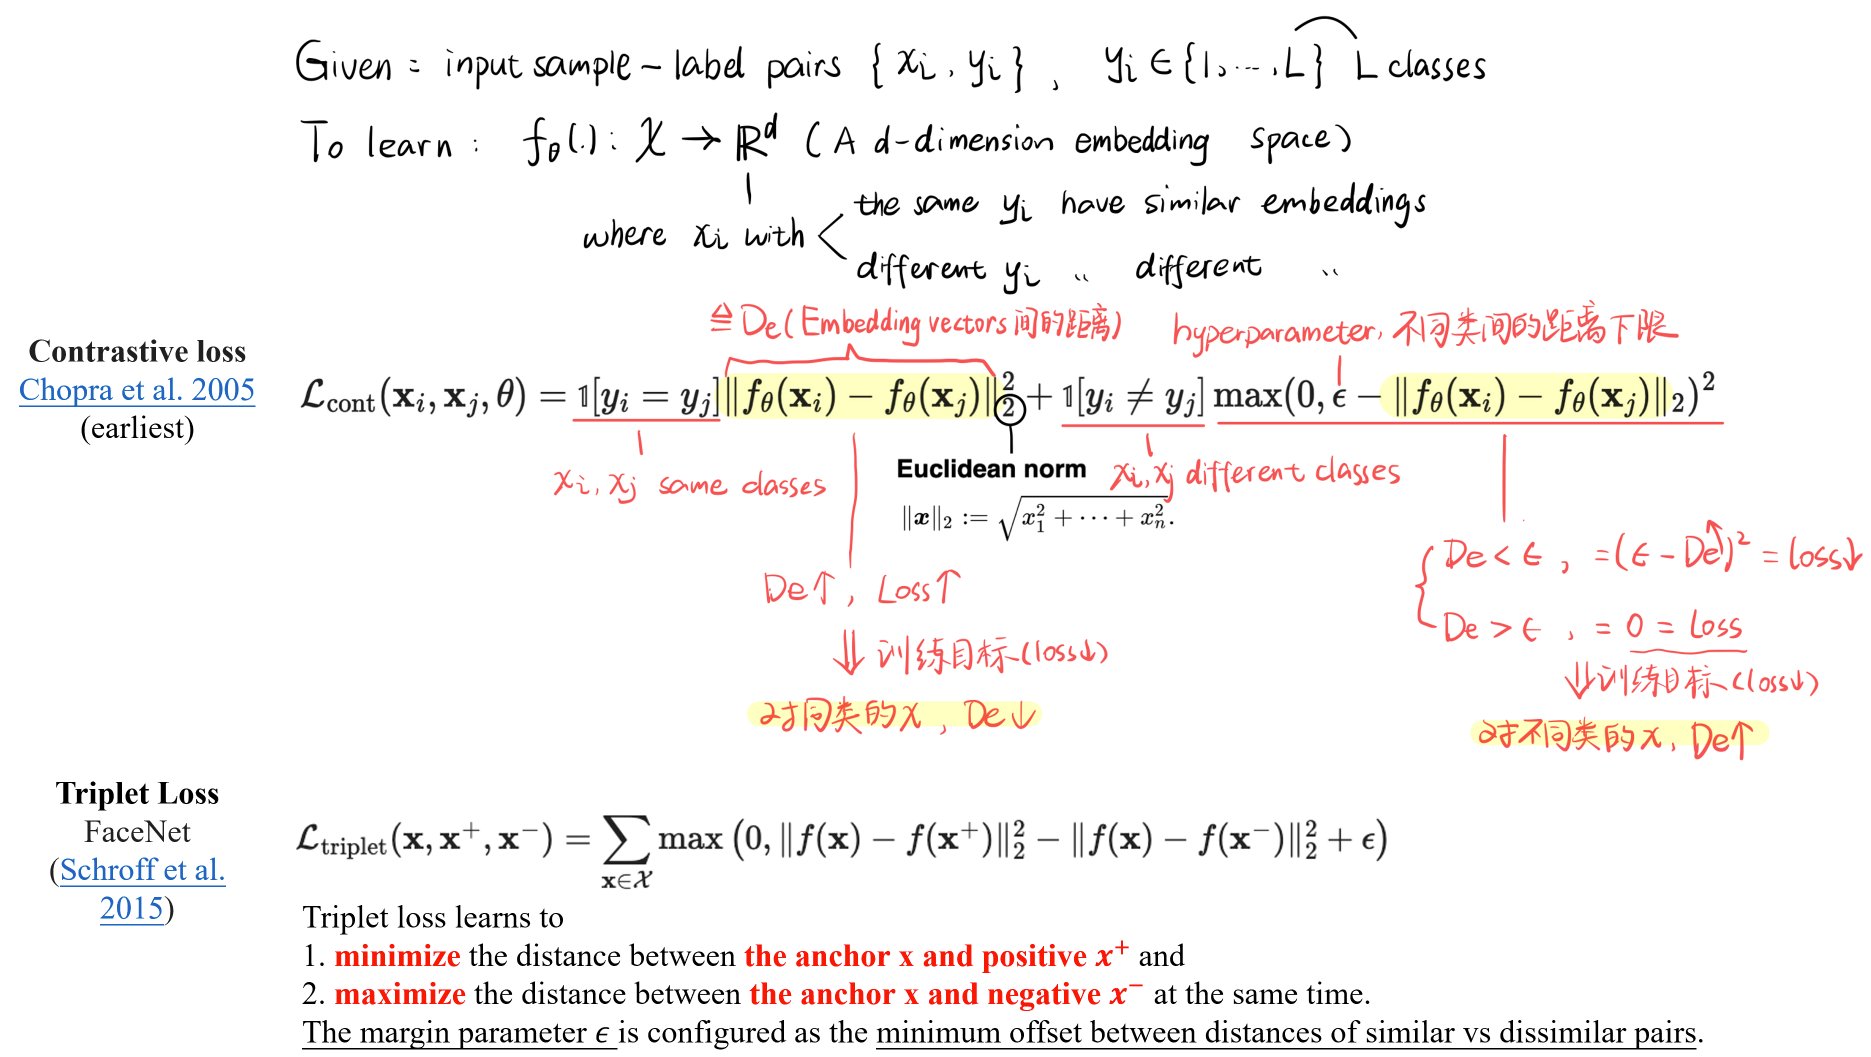 Given: input sample-label pairs {xi, yi}, yi ∈ {1, ..., L} L classes
To learn: fθ(.): X → ℝᵈ (A d-dimension embedding space)
where xi with
the same yi have similar embeddings
different yi 〃 different 〃
≜ De (Embedding vectors 间的距离)
hyperparameter, 不同类间的距离下限
Contrastive loss
Chopra et al. 2005
(earliest)
𝓛cont(xi, xj, θ) = 𝟙[yi = yj]‖fθ(xi) − fθ(xj)‖₂² + 𝟙[yi ≠ yj] max(0, ϵ − ‖fθ(xi) − fθ(xj)‖₂)²
xi, xj same classes
Euclidean norm
xi, xj different classes
‖x‖₂ := √(x₁² + ··· + xₙ²).
De↑, Loss↑
⇓ 训练目标(loss↓)
对同类的x, De↓
De < ϵ, =(ϵ - De↑)² = loss↓
De > ϵ, = 0 = Loss
⇓训练目标(loss↓)
对不同类的x, De↑
Triplet Loss
FaceNet
(Schroff et al.
2015)
𝓛triplet(x, x⁺, x⁻) = ∑x∈𝒳 max (0, ‖f(x) − f(x⁺)‖₂² − ‖f(x) − f(x⁻)‖₂² + ϵ)
Triplet loss learns to
1. minimize the distance between the anchor x and positive x⁺ and
2. maximize the distance between the anchor x and negative x⁻ at the same time.
The margin parameter ϵ is configured as the minimum offset between distances of similar vs dissimilar pairs.